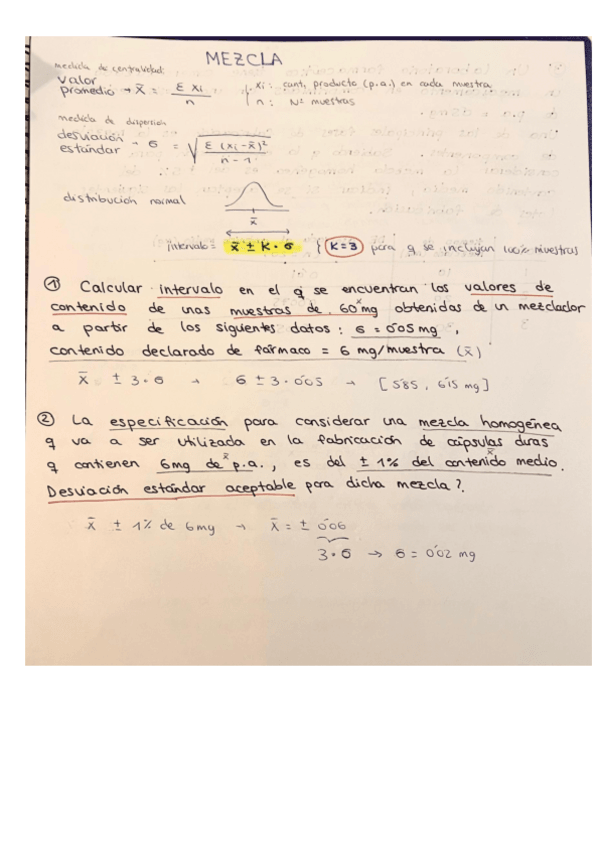 MEZCLA
medida de centralidad:
valor promedio → x̄ = Σ xi / n { xi: cant. producto (p.a.) en cada muestra
n: Nº muestras
medida de dispersión
desviación estándar → σ = √( Σ (xi - x̄)² / n - 1 )
distribución normal
x̄
Intervalo = x̄ ± K · σ { K = 3 para q se incluyan 100% muestras
① Calcular intervalo en el q se encuentran los valores de
contenido de unas muestras de 60 mg obtenidas de un mezclador
a partir de los siguientes datos: σ = 0'05 mg,
contenido declarado de fármaco = 6 mg/muestra (x̄)
x̄ ± 3 · σ → 6 ± 3 · 0'05 → [5'85, 6'15 mg]
② La especificación para considerar una mezcla homogénea
q va a ser utilizada en la fabricación de cápsulas duras
x̄
q contienen 6mg de p.a., es del ± 1% del contenido medio.
Desviación estándar aceptable para dicha mezcla?
x̄ ± 1% de 6mg → x̄ = ± 0'06
3 · σ → σ = 0'02 mg